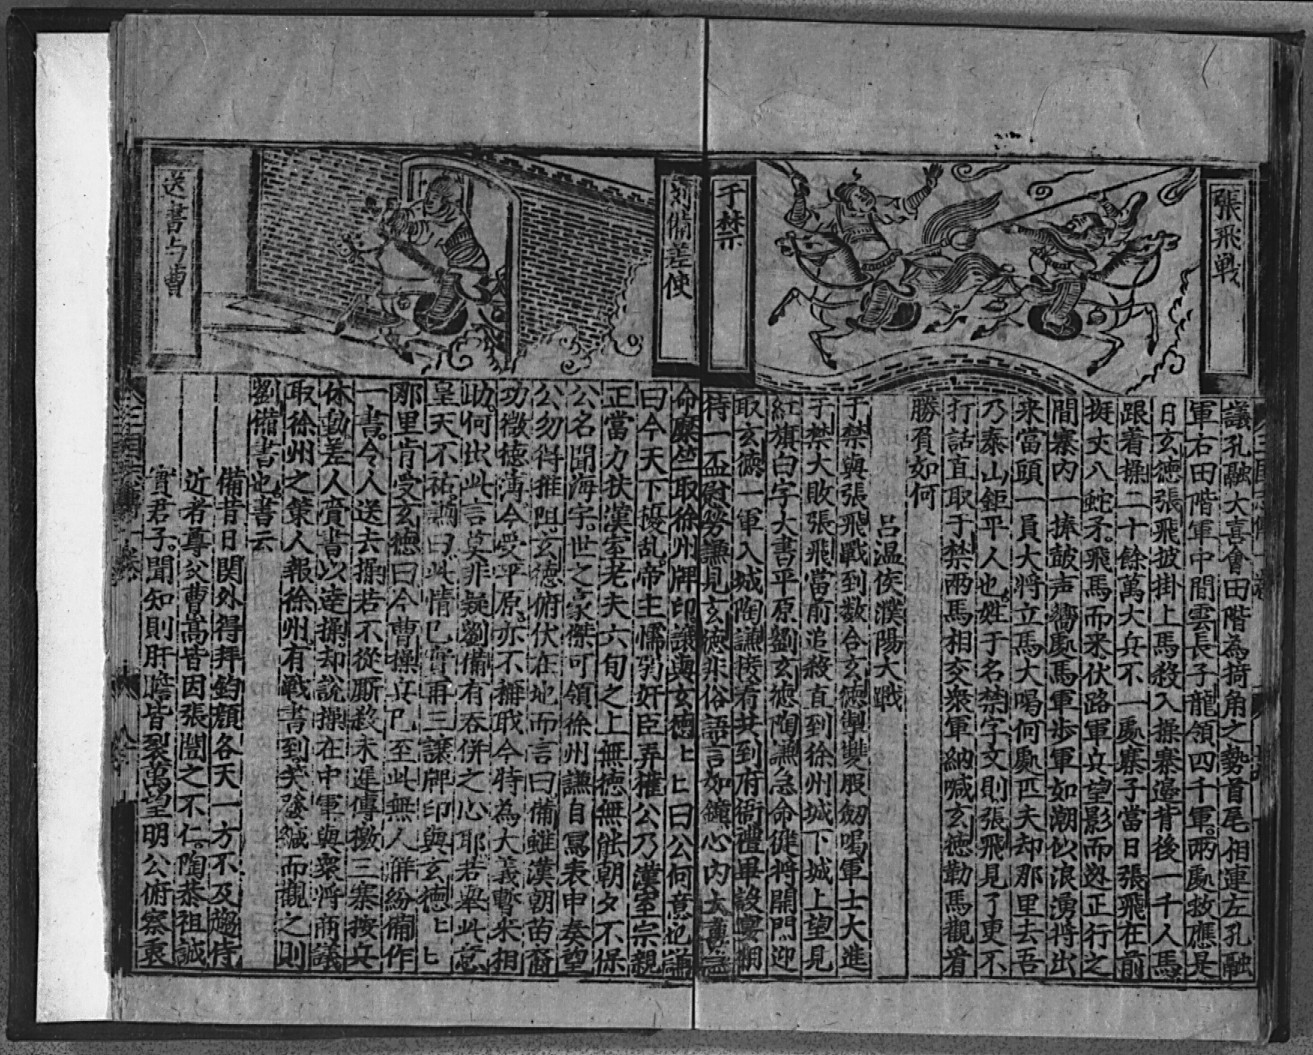 張飛戰
于禁
議孔融大喜會田階為掎角之勢首尾相連左孔融
軍右田階軍中間雲長子龍領四千軍兩處救應是
日玄德張飛披掛上馬殺入操寨邉背後一千人馬
跟着操二十餘萬大兵不一處寨子當日張飛在前
挺丈八蛇矛飛馬而来伏路軍兵望影而迯正行之
間寨内一捧鼓声嚮處馬軍步軍如潮似浪湧将出
来當頭一員大将立馬大喝何處匹夫却那里去吾
乃泰山鉅平人也姓于名禁字文則張飛見了更不
打話直取于禁兩馬相交衆軍納喊玄德勒馬觀看
勝負如何
吕温侯濮陽大戰
于禁與張飛戰到数合玄德掣雙股劒喝軍士大進
于禁大敗張飛當前追殺直到徐州城下城上望見
紅旗白字大書平原劉玄德陶謙急命健将開門迎
取玄德一軍入城陶謙接着共到府衙禮畢設宴相
待一盃慰勞謙見玄德非俗語言如鐘心内大喜
劉備差使
送書与曹
命糜竺取徐州牌印讓與玄德匕匕曰公何意也謙
曰今天下擾乱帝主懦弱奸臣弄權公乃漢室宗親
正當力扶漢室老夫六旬之上無德無能朝夕不保
公名聞海宇世之豪傑可領徐州謙自寫表申奏望
公勿得推阻玄德俯伏在地而言曰備雖漢朝苗裔
功微德薄今受平原亦不稱戢今特為大義暫来相
助何出此言莫非疑劉備有吞併之心耶若舉此意
皇天不祐謙曰此情已實再三讓牌印與玄德匕匕
那里肯受玄德曰今曹操兵已至此無人觧紛備作
一書令人送去操若不從厮殺未遲傳檄三寨按兵
休動差人賫書以逹操却說操在中軍與衆将商議
取徐州之策人報徐州有戰書到笑發緘而觀之則
劉備書也書云
備昔日関外得拜鈞顔各天一方不及趨侍
近者尊父曹嵩皆因張闓之不仁陶恭祖誠
實君子聞知則肝膽皆裂萬望明公俯察衷